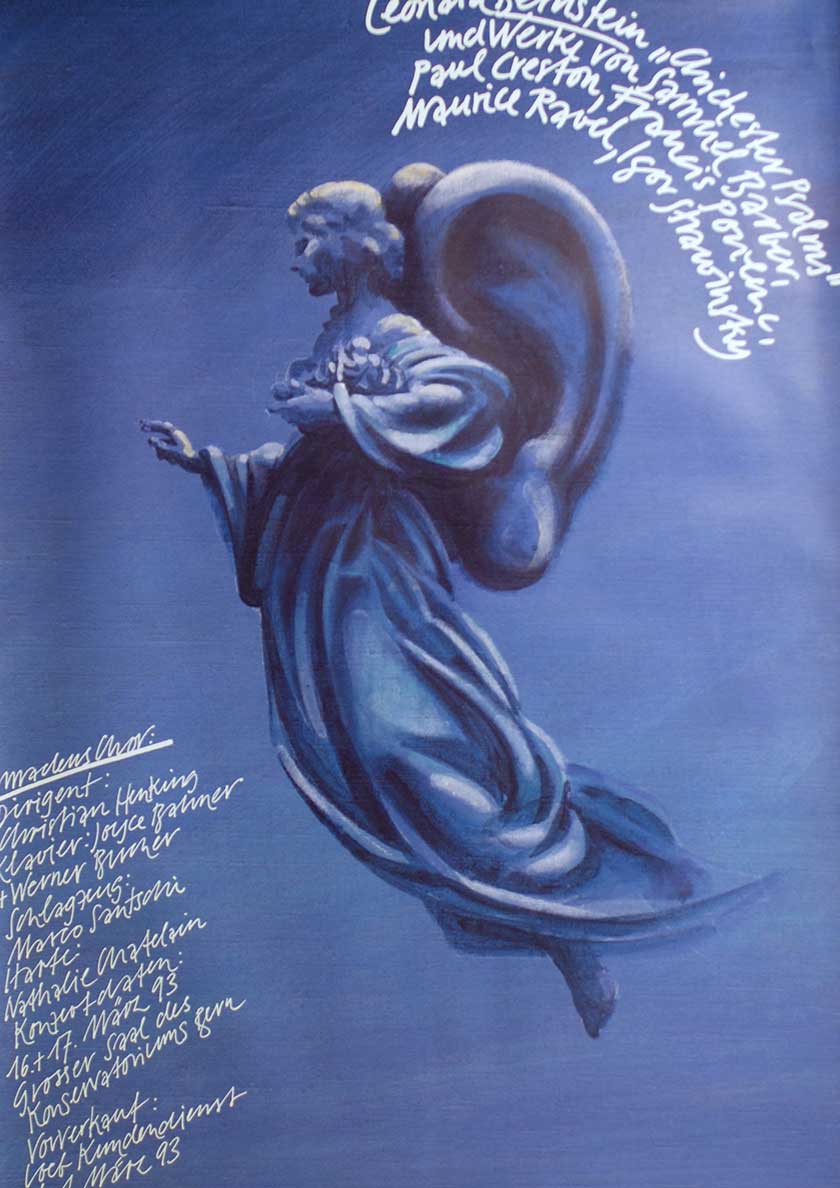 Leonard Bernstein „Chichester Psalms"
und Werke von Samuel Barber,
Paul Creston, Francis Poulenc,
Maurice Ravel, Igor Strawinsky
Amadeus Chor:
Dirigent:
Christian Henking
Klavier: Joyce Bahner
+ Werner Bucher
Schlagzeug:
Marco Santschi
Harfe:
Nathalie Chatelain
Konzertdaten:
16. + 17. März 93
Grosser Saal des
Konservatoriums Bern
Vorverkauf:
Loeb Kundendienst
März 93